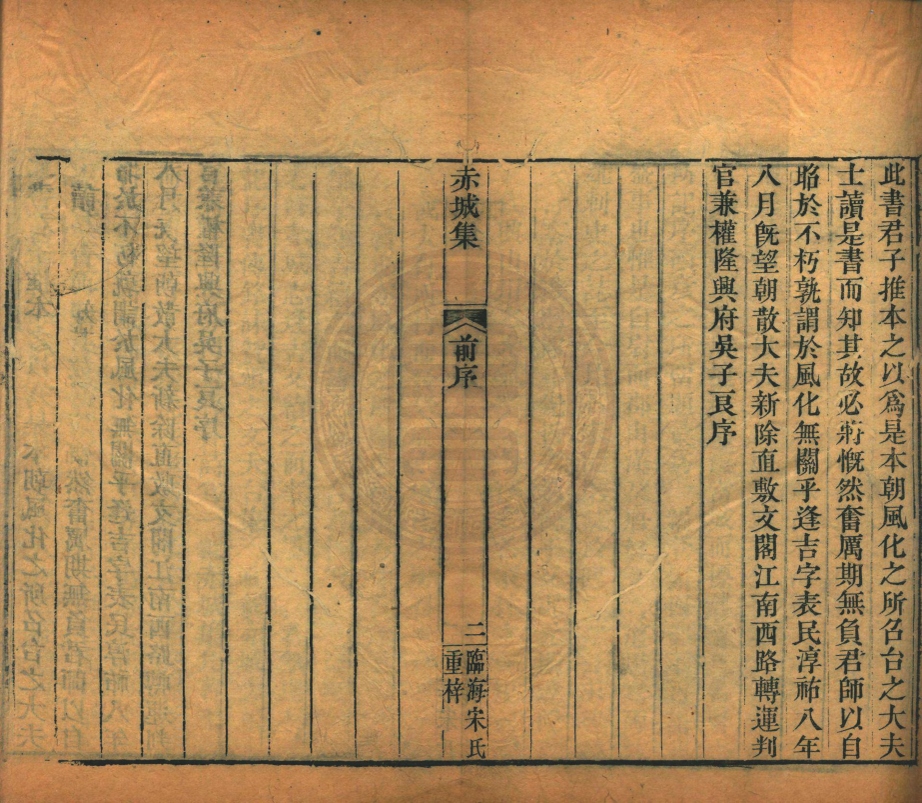 此書君子推本之以爲是本朝風化之所召台之大夫
士讀是書而知其故必將慨然奮厲期無負君師以自
昭於不朽孰謂於風化無關乎逢吉字表民淳祐八年
八月旣望朝散大夫新除直敷文閣江南西路轉運判
官兼權隆興府吳子良序
赤城集
前序
二
臨海宋氏
重梓